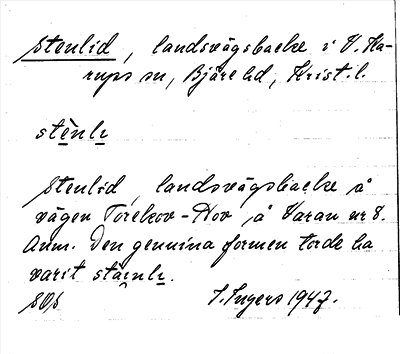 Stenlid, landsvägsbacke i V. Ka-
rups sn, Bjäre hd, Krist. l.
stènlı̠
Stenlid, landsvägsbacke å
vägen Torekov-Hov å Varan nr 8.
Anm. Den genuina formen torde ha
varit stäinlı̠.
I. Ingers 1947.